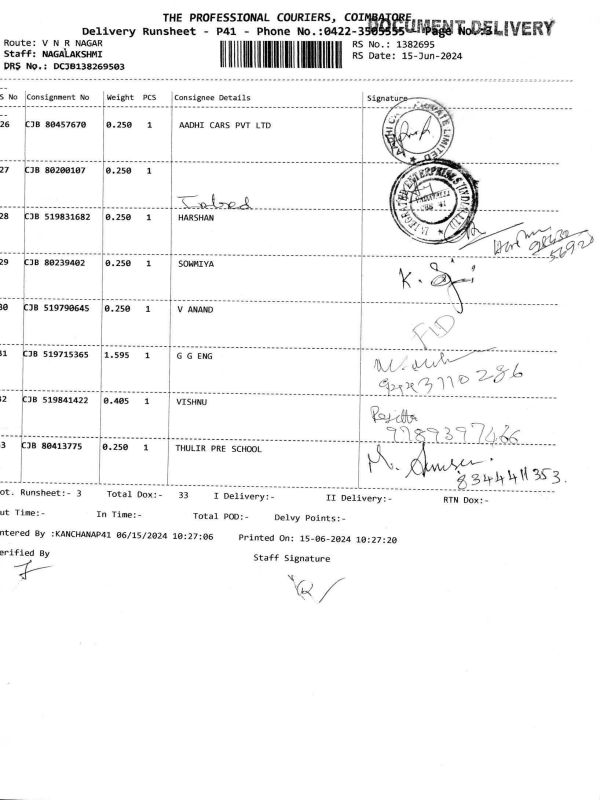 THE PROFESSIONAL COURIERS, COIMBATORE
DOCUMENT DELIVERY
Delivery Runsheet - P41 - Phone No.:0422-3505555 Page No.:3
Route: V N R NAGAR
RS No.: 1382695
Staff: NAGALAKSHMI
RS Date: 15-Jun-2024
DRS No.: DCJB138269503
S No Consignment No Weight PCS Consignee Details Signature
26 CJB 80457670 0.250 1 AADHI CARS PVT LTD
27 CJB 80200107 0.250 1
28 CJB 519831682 0.250 1 HARSHAN
29 CJB 80239402 0.250 1 SOWMIYA
30 CJB 519790645 0.250 1 V ANAND
31 CJB 519715365 1.595 1 G G ENG
32 CJB 519841422 0.405 1 VISHNU
9789397466
33 CJB 80413775 0.250 1 THULIR PRE SCHOOL
8344411353.
ot. Runsheet:- 3 Total Dox:- 33 I Delivery:- II Delivery:- RTN Dox:-
ut Time:- In Time:- Total POD:- Delvy Points:-
ntered By :KANCHANAP41 06/15/2024 10:27:06 Printed On: 15-06-2024 10:27:20
erified By
Staff Signature